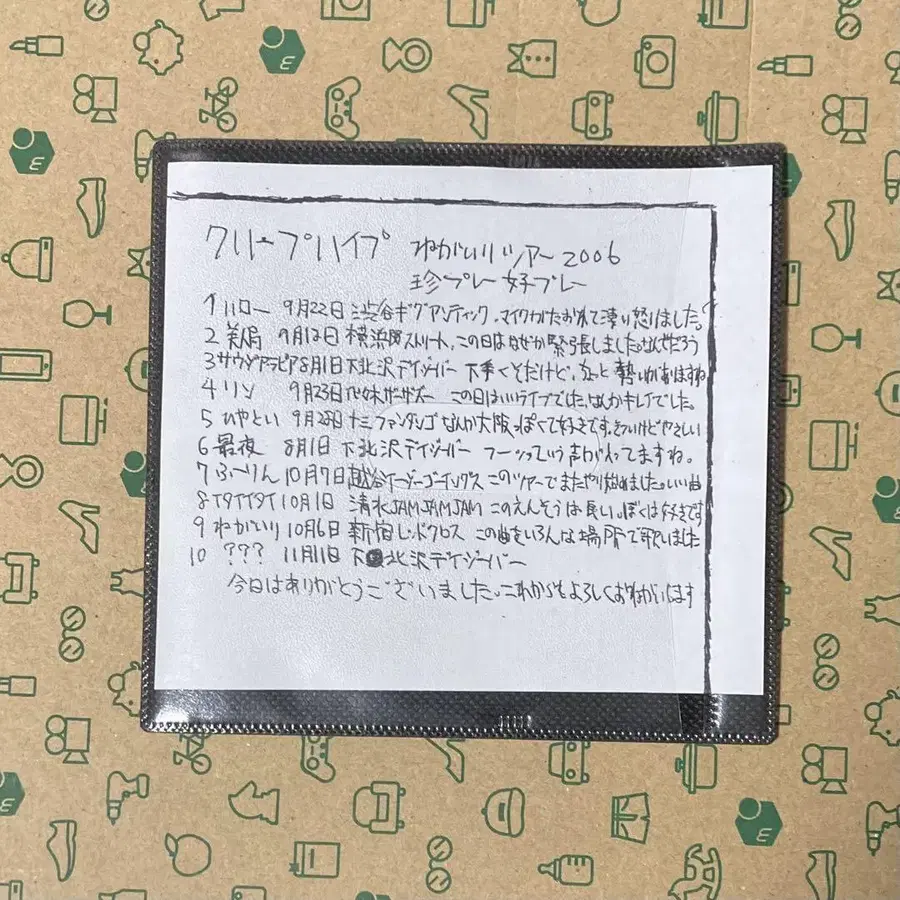 クリープハイプ ねがいりツアー2006
珍プレー好プレー
1 ハロー 9月22日 渋谷ギグアンティック、マイクがたおれて凄い怒りました。
2 美人局 9月12日 横浜 ストリート、この日はなぜか緊張しましたなんでだろう
3 サウダアラビア 8月1日 下北沢デイジーバー 下手くそだけど、ちょっと 勢いがありますね
4 リン 9月23日 代々木ザーザズー この日はいいライブでした、なんかキレイでした。
5 ひやとい 9月28日 十三ファンダンゴ なんか大阪っぽくて好きです。きついけどやさしい
6 最夜 8月1日 下北沢デイジーバー フーッっていう声が入ってますね。
7 ふ〜りん 10月7日 越谷イージーゴーイングス このツアーでまたやり始めました。いい曲
8 イタイイタイ 10月1日 清水JAMJAMJAM このえんそうは長い。ぼくは好きです
9 ねがいり 10月6日 新宿レッドクロス この曲をいろんな場所で歌いました
10 ??? 11月11日 下北沢デイジーバー
今日はありがとうございました。これからもよろしくおねがいします
ε
ε
ε
ε
ε